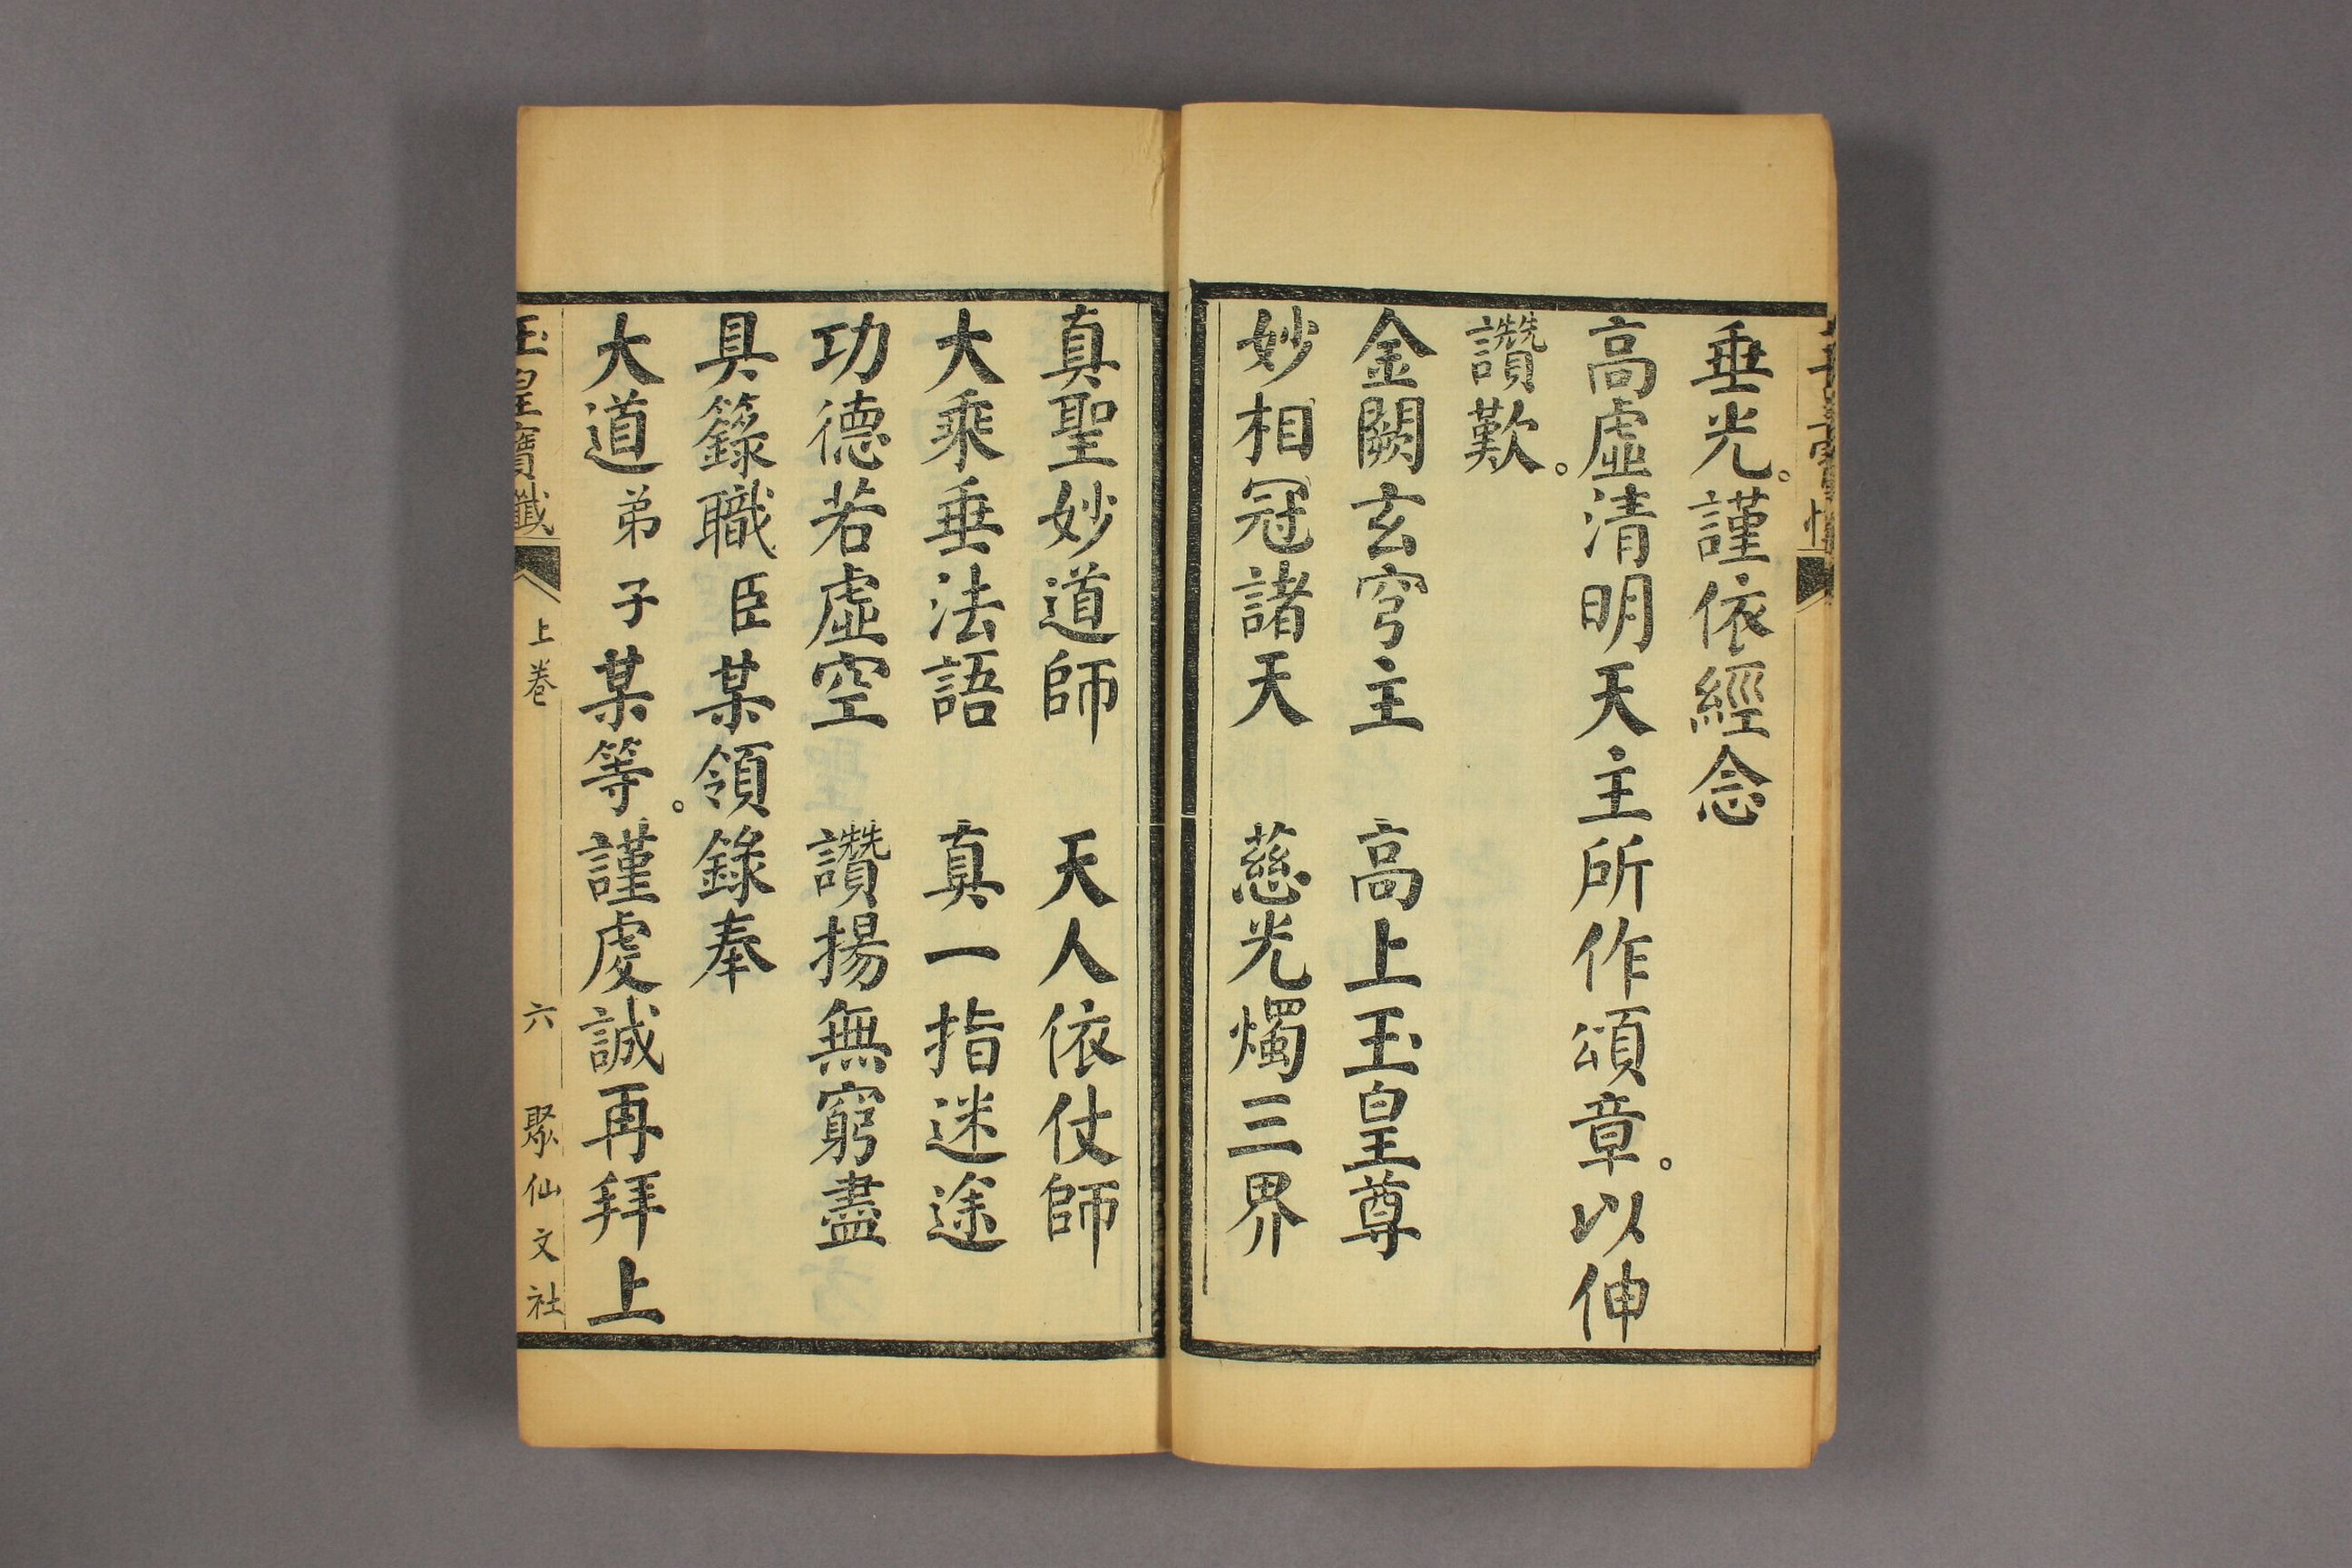 垂光。謹依經念
高虛清明天主所作頌章。以伸
讚歎。
金闕玄穹主　高上玉皇尊
妙相冠諸天　慈光燭三界
真聖妙道師　天人依仗師
大乘垂法語　真一指迷途
功德若虛空　讚揚無窮盡
具籙職臣某領錄奉
大道弟子某等。謹虔誠再拜上
玉皇寶懺　上卷　六　聚仙文社